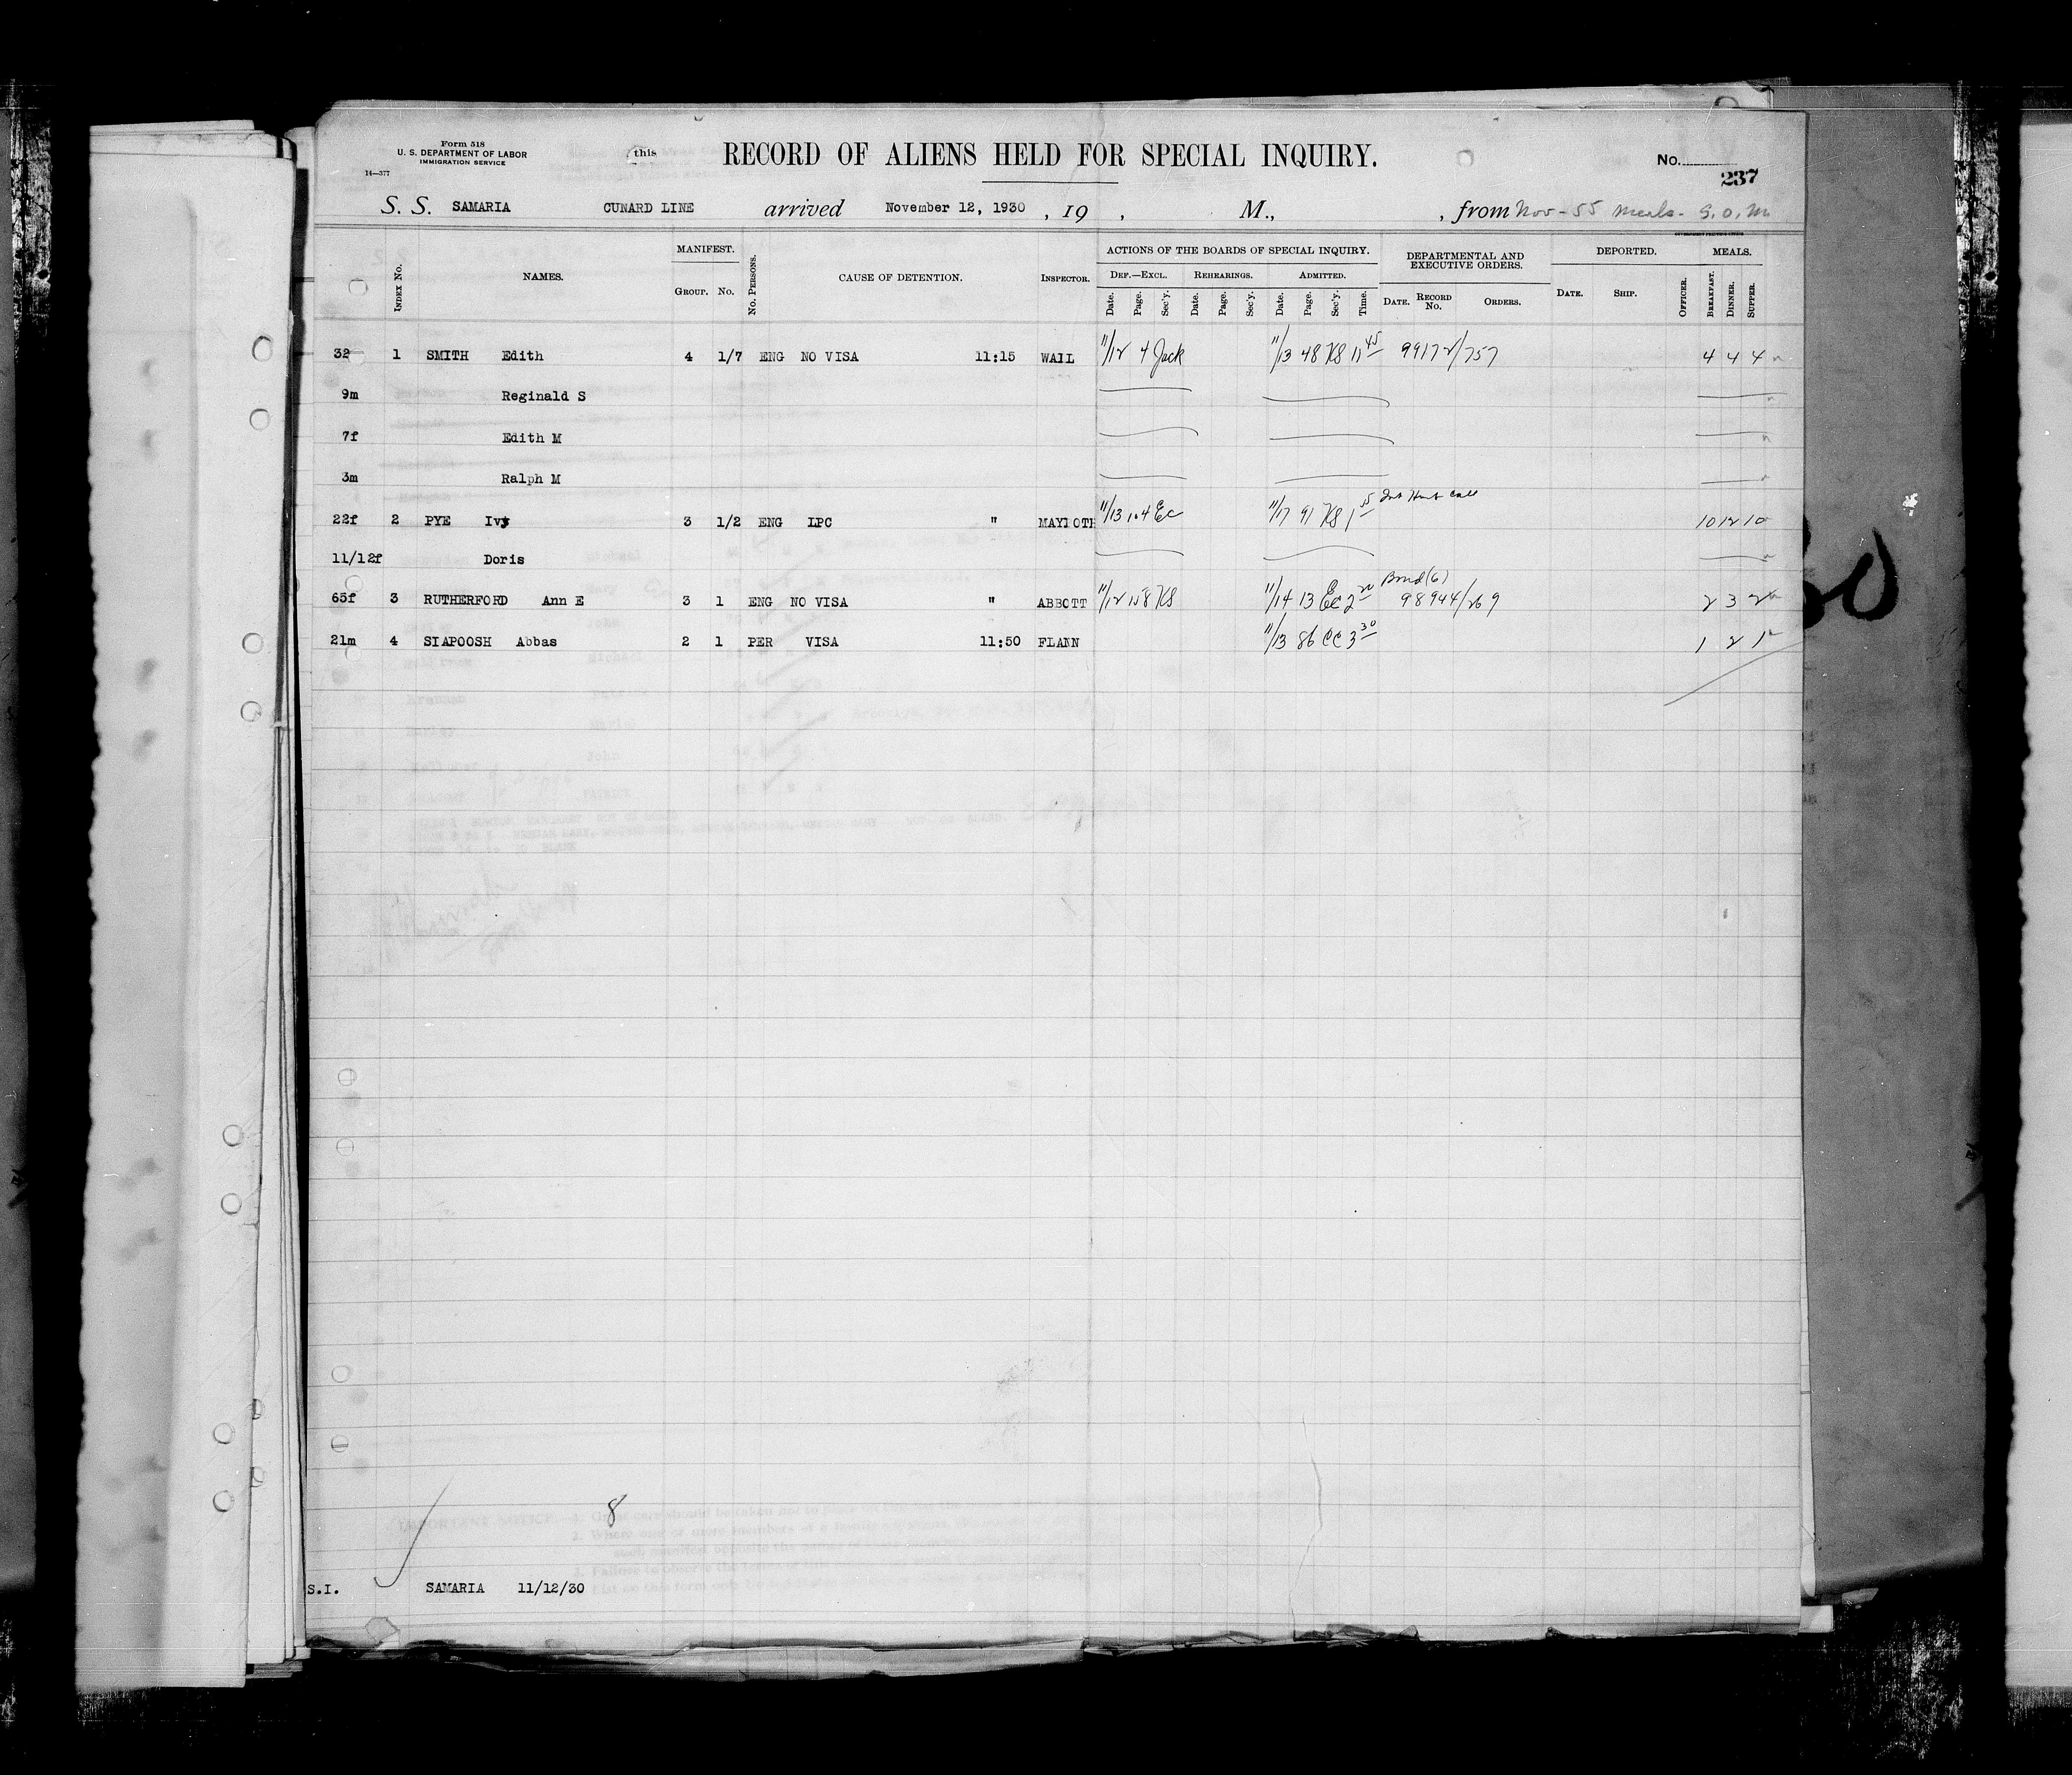 Form 518
U. S. DEPARTMENT OF LABOR
IMMIGRATION SERVICE
14—377
this
RECORD OF ALIENS HELD FOR SPECIAL INQUIRY.
No.
237
S. S. SAMARIA CUNARD LINE arrived November 12, 1930 , 19 , M., , from Nov - 55 meals - S. O. M
INDEX No. NAMES. MANIFEST. GROUP. No. No. PERSONS. CAUSE OF DETENTION. INSPECTOR. ACTIONS OF THE BOARDS OF SPECIAL INQUIRY. DEF.—EXCL. Date. Page. Sec'y. REHEARINGS. Date. Page. Sec'y. ADMITTED. Date. Page. Sec'y. Time. DEPARTMENTAL AND EXECUTIVE ORDERS. DATE. RECORD No. ORDERS. DEPORTED. DATE. SHIP. OFFICER. MEALS. BREAKFAST. DINNER. SUPPER.
32 1 SMITH Edith 4 1/7 ENG NO VISA 11:15 WAIL 11/12 4 Jack 11/13 48 KS 11 45 99172/757 4 4 4
9m Reginald S
7f Edith M
3m Ralph M
22f 2 PYE Ivy 3 1/2 ENG LPC " MAYLOTH 11/13 104 EC 11/17 91 KS 1 15 10 12 10
11/12f Doris
65f 3 RUTHERFORD Ann E 3 1 ENG NO VISA " ABBOTT 11/12 158 KS 11/14 13 EC 2 20 Bond (6) 98944/269 2 3 2
21m 4 SIAPOOSH Abbas 2 1 PER VISA 11:50 FLANN 11/13 86 CC 3 30 1 2 1
8
S.I. SAMARIA 11/12/30